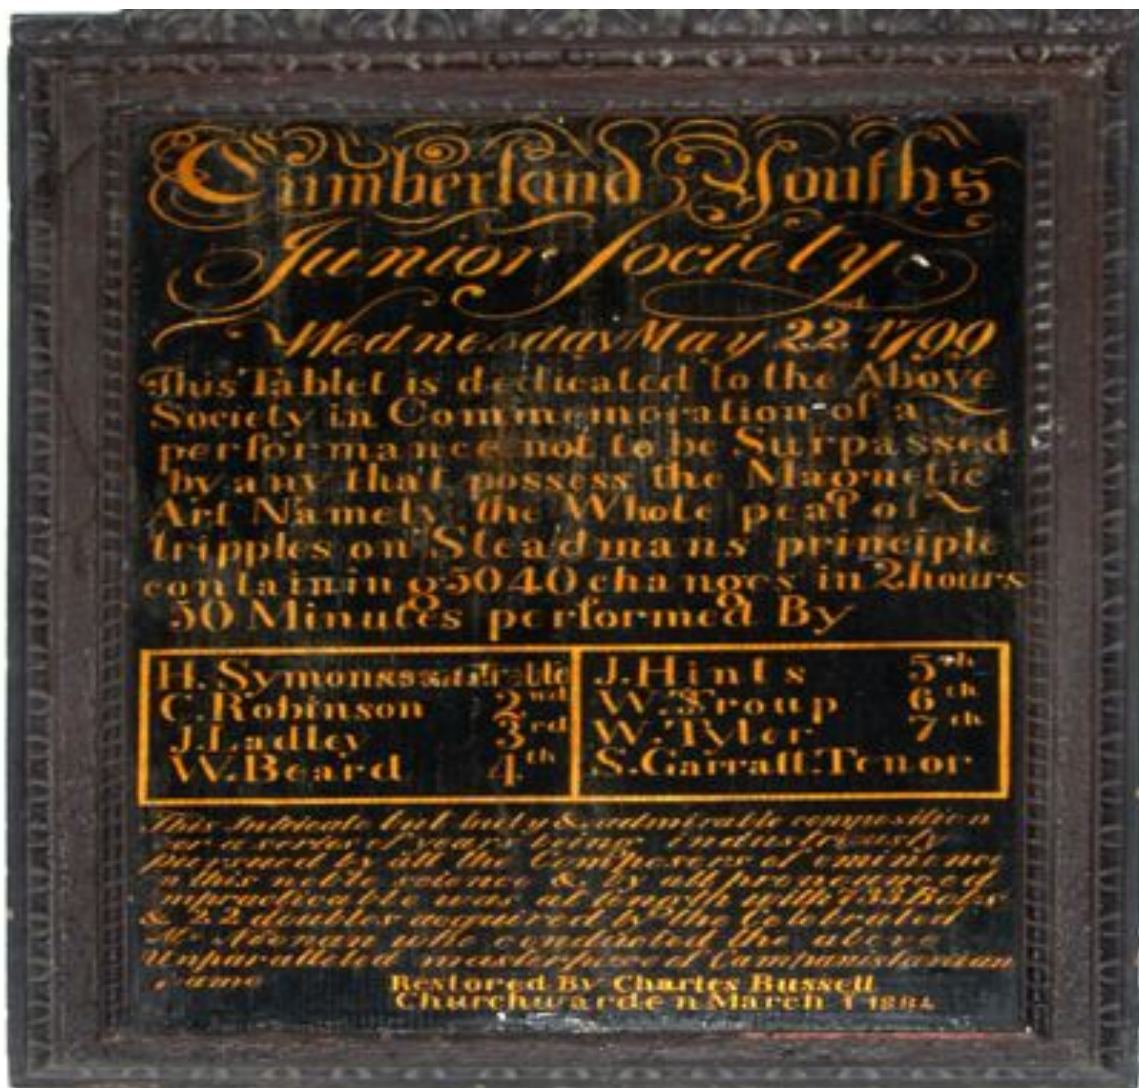 Cumberland Youths
Junior Society
Wednesday May 22 1799
This Tablet is dedicated to the Above
Society in Commemoration of a
performance not to be Surpassed
by any that possess the Magnetic
Art Namely the Whole peal of
tripples on Steadmans principle
containing 5040 changes in 2 hours
50 Minutes performed By
H. Symons Treble
C. Robinson 2nd
J. Ladley 3rd
W. Beard 4th
J. Hints 5th
W. Troup 6th
W. Tyler 7th
S. Garratt. Tenor
This Intricate but truly & admirable composition
for a series of years being Industriously
pursued by all the Composers of eminence
in this noble science & by all pronounced
impracticable was at length with Bobs
& 22 doubles acquired by the Celebrated
Mr. who conducted the above
Unparalleled masterpiece of Campanistanian
fame
Restored By Charles Bussell
Churchwarden March 1 1884